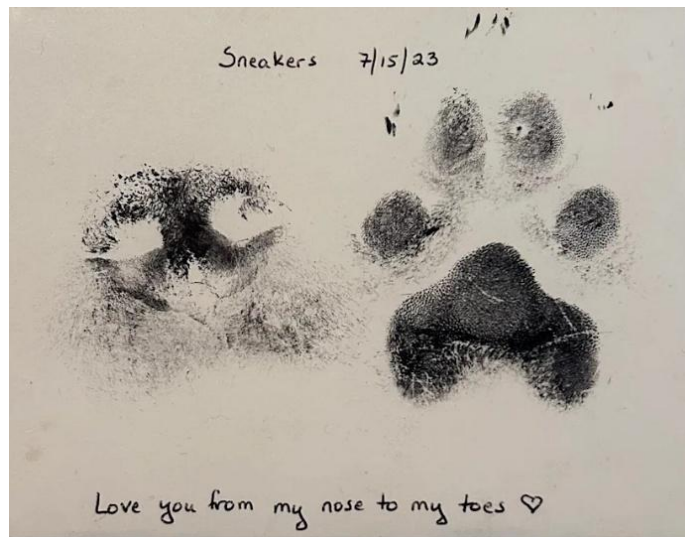 Sneakers 7/15/23
Love you from my nose to my toes ♡